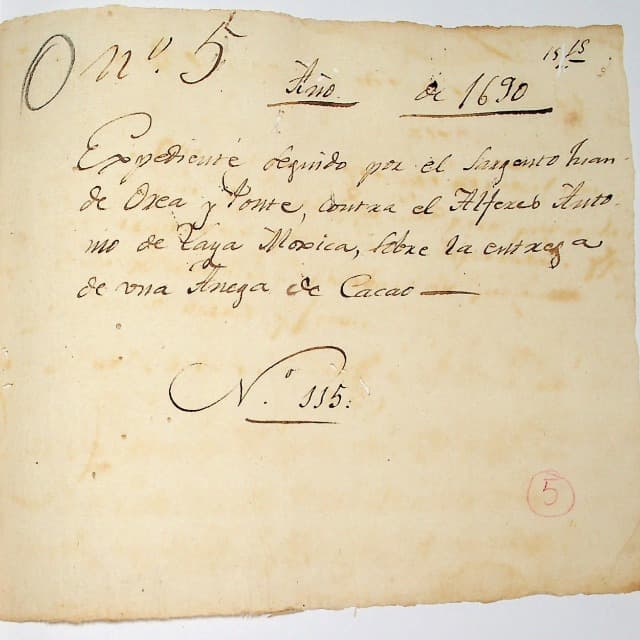 nº. 5
Año de 1690
Expediente seguido por el Sargento Juan
de Orea y Ponte, contra el Alferes Anto-
nio de Laya Moxica, sobre la entrega
de vna Anega de Cacao —
N.º 115:
5